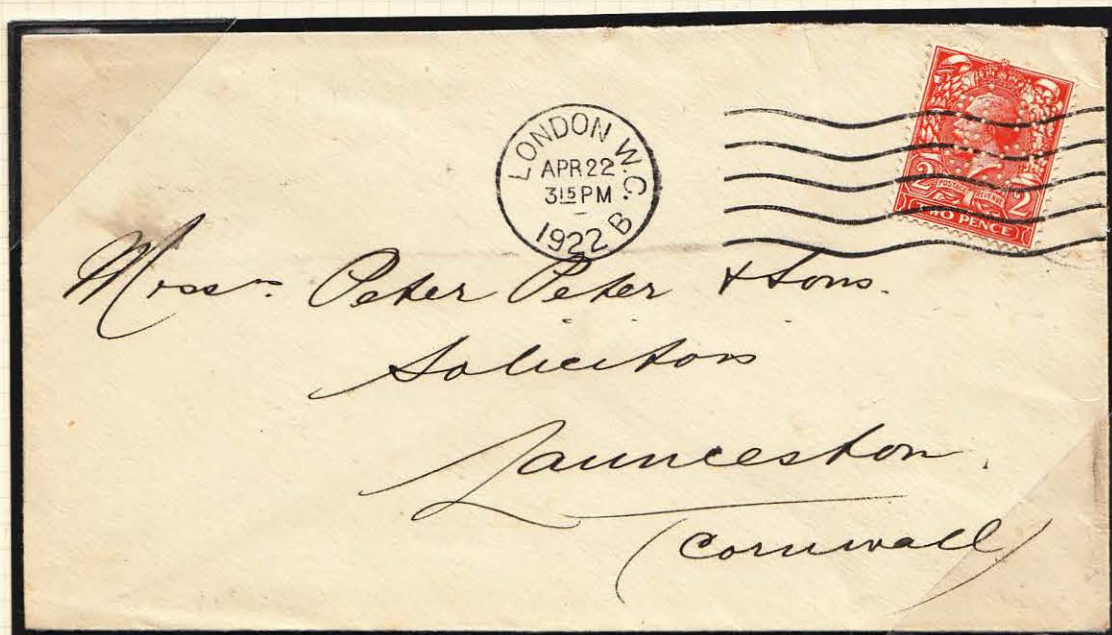 LONDON W.C.
APR 22
3 15 PM
1922 B
2 POSTAGE REVENUE 2
TWO PENCE
Messrs Peter Peter & Sons.
Solicitors
Launceston.
(Cornwall)